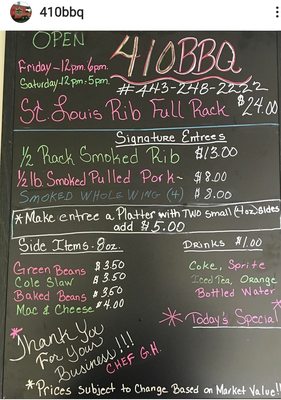 410bbq
OPEN
410BBQ
Friday-12pm-6pm.
Saturday-12pm-5pm.
#443-248-2222
St. Louis Rib Full Rack $24.00
Signature Entrees
1/2 Rack Smoked Rib $13.00
1/2 lb. Smoked Pulled Pork~ $8.00
SMOKED WHOLE WING (4) $8.00
*Make entree a Platter with TWO small (4oz) sides
add $5.00
Side Items-8oz.
Green Beans $3.50
Cole Slaw $3.50
Baked Beans $3.50
Mac & Cheese $4.00
DRINKS $1.00
Coke, Sprite
Iced Tea, Orange
Bottled Water
*Today's Special*
*Thank You
For Your
Business!!!
CHEF G.H.
*Prices Subject to Change Based on Market Value!!